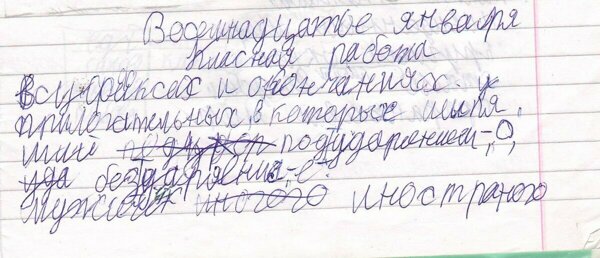 Восемнадцатое января
Класная работа
Всуффиксах и окончаниях.
прилогательных в которых шипя.
щий подударением-,О,
безударения-,е.
мужской иностраного